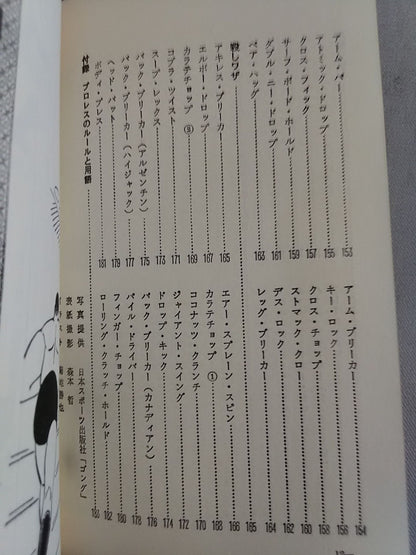 アーム・バー……153
アーム・ブリーカー……154
アトミック・ドロップ……155
キー・ロック……156
クロス・フィックス……157
クロス・チョップ……158
サーフ・ボード・ホールド……159
ストマック・クロー……160
ダブル・ニー・ドロップ……161
デス・ロック……162
ベア・ハッグ……163
レッグ・ブリーカー……164
殺しワザ
アキレス・ブリーカー……165
エアー・スプレーン・スピン……166
エルボー・ドロップ……167
カラテチョップ①……168
カラテチョップ⑪……169
ココナッツ・クランチ……170
コブラ・ツイスト……171
ジャイアント・スイング……172
スープレックス……173
ドロップ・キック……174
バック・ブリーカー（アルゼンチン）……175
バック・ブリーカー（カナディアン）……176
バック・ブリーカー（ハイジャック）……177
パイル・ドライバー……178
ヘッド・バット……179
フィンガー・チョップ……180
ボディ・プレス……181
ローリング・クラッチ・ホールド……182
付録 プロレスのルールと用語……183
写真提供 日本スポーツ出版社「ゴング」
表紙撮影 森本 哲